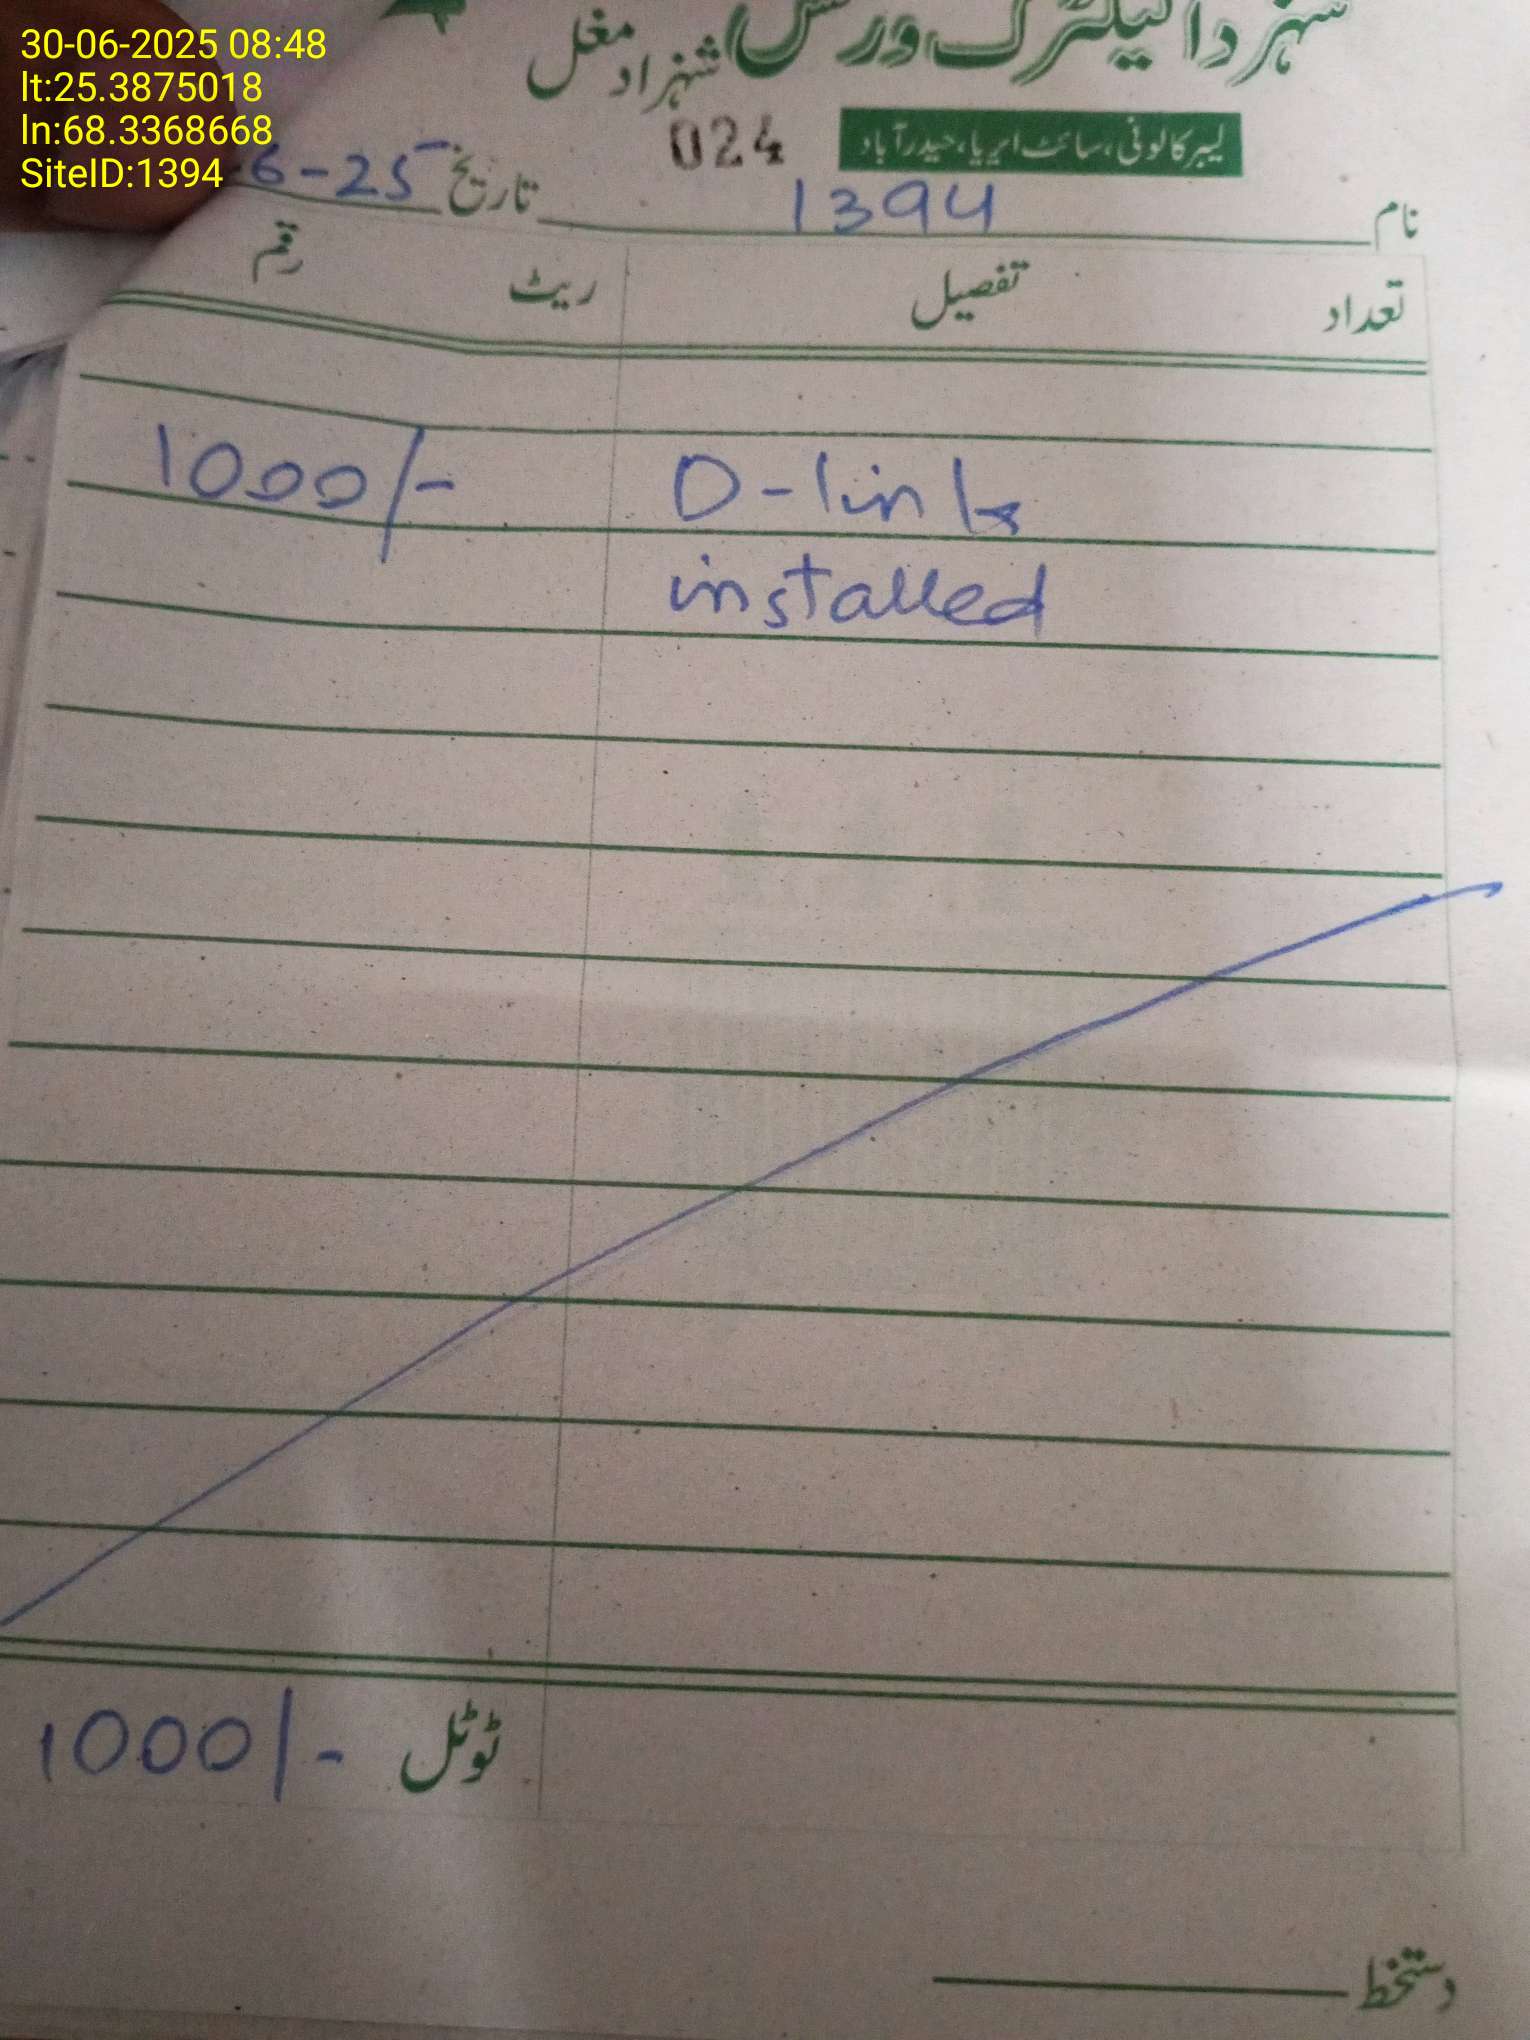 30-06-2025 08:48
lt:25.3875018
ln:68.3368668
SiteID:1394
الیکٹرک ورکس
شہزاد مغل
024
لیبر کالونی، سائٹ ایریا، حیدرآباد
نام 1394 تاریخ 6-25
تعداد تفصیل ریٹ رقم
D-link 1000/-
installed
ٹوٹل 1000/-
دستخط